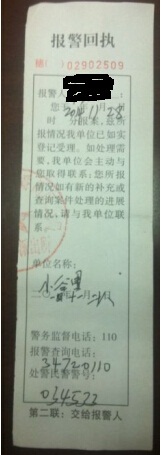 报警回执
02902509
报警人
您
2011.11.28
时 分报案,您所
报情况我单位已如实
登记受理。如处理需
要,我单位会主动与
您取得联系;您所报
情况如有新的补充或
查询案件处理的进展
情况,请与我单位联
系。
单位名称:
警务监督电话:110
报警查询电话:
34720110
处警民警警号:
034522
第二联:交给报警人